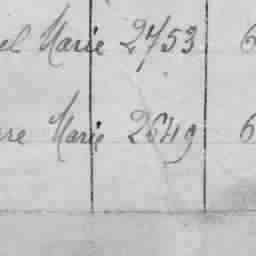 el Marie 2753 6
re Marie 2649 6